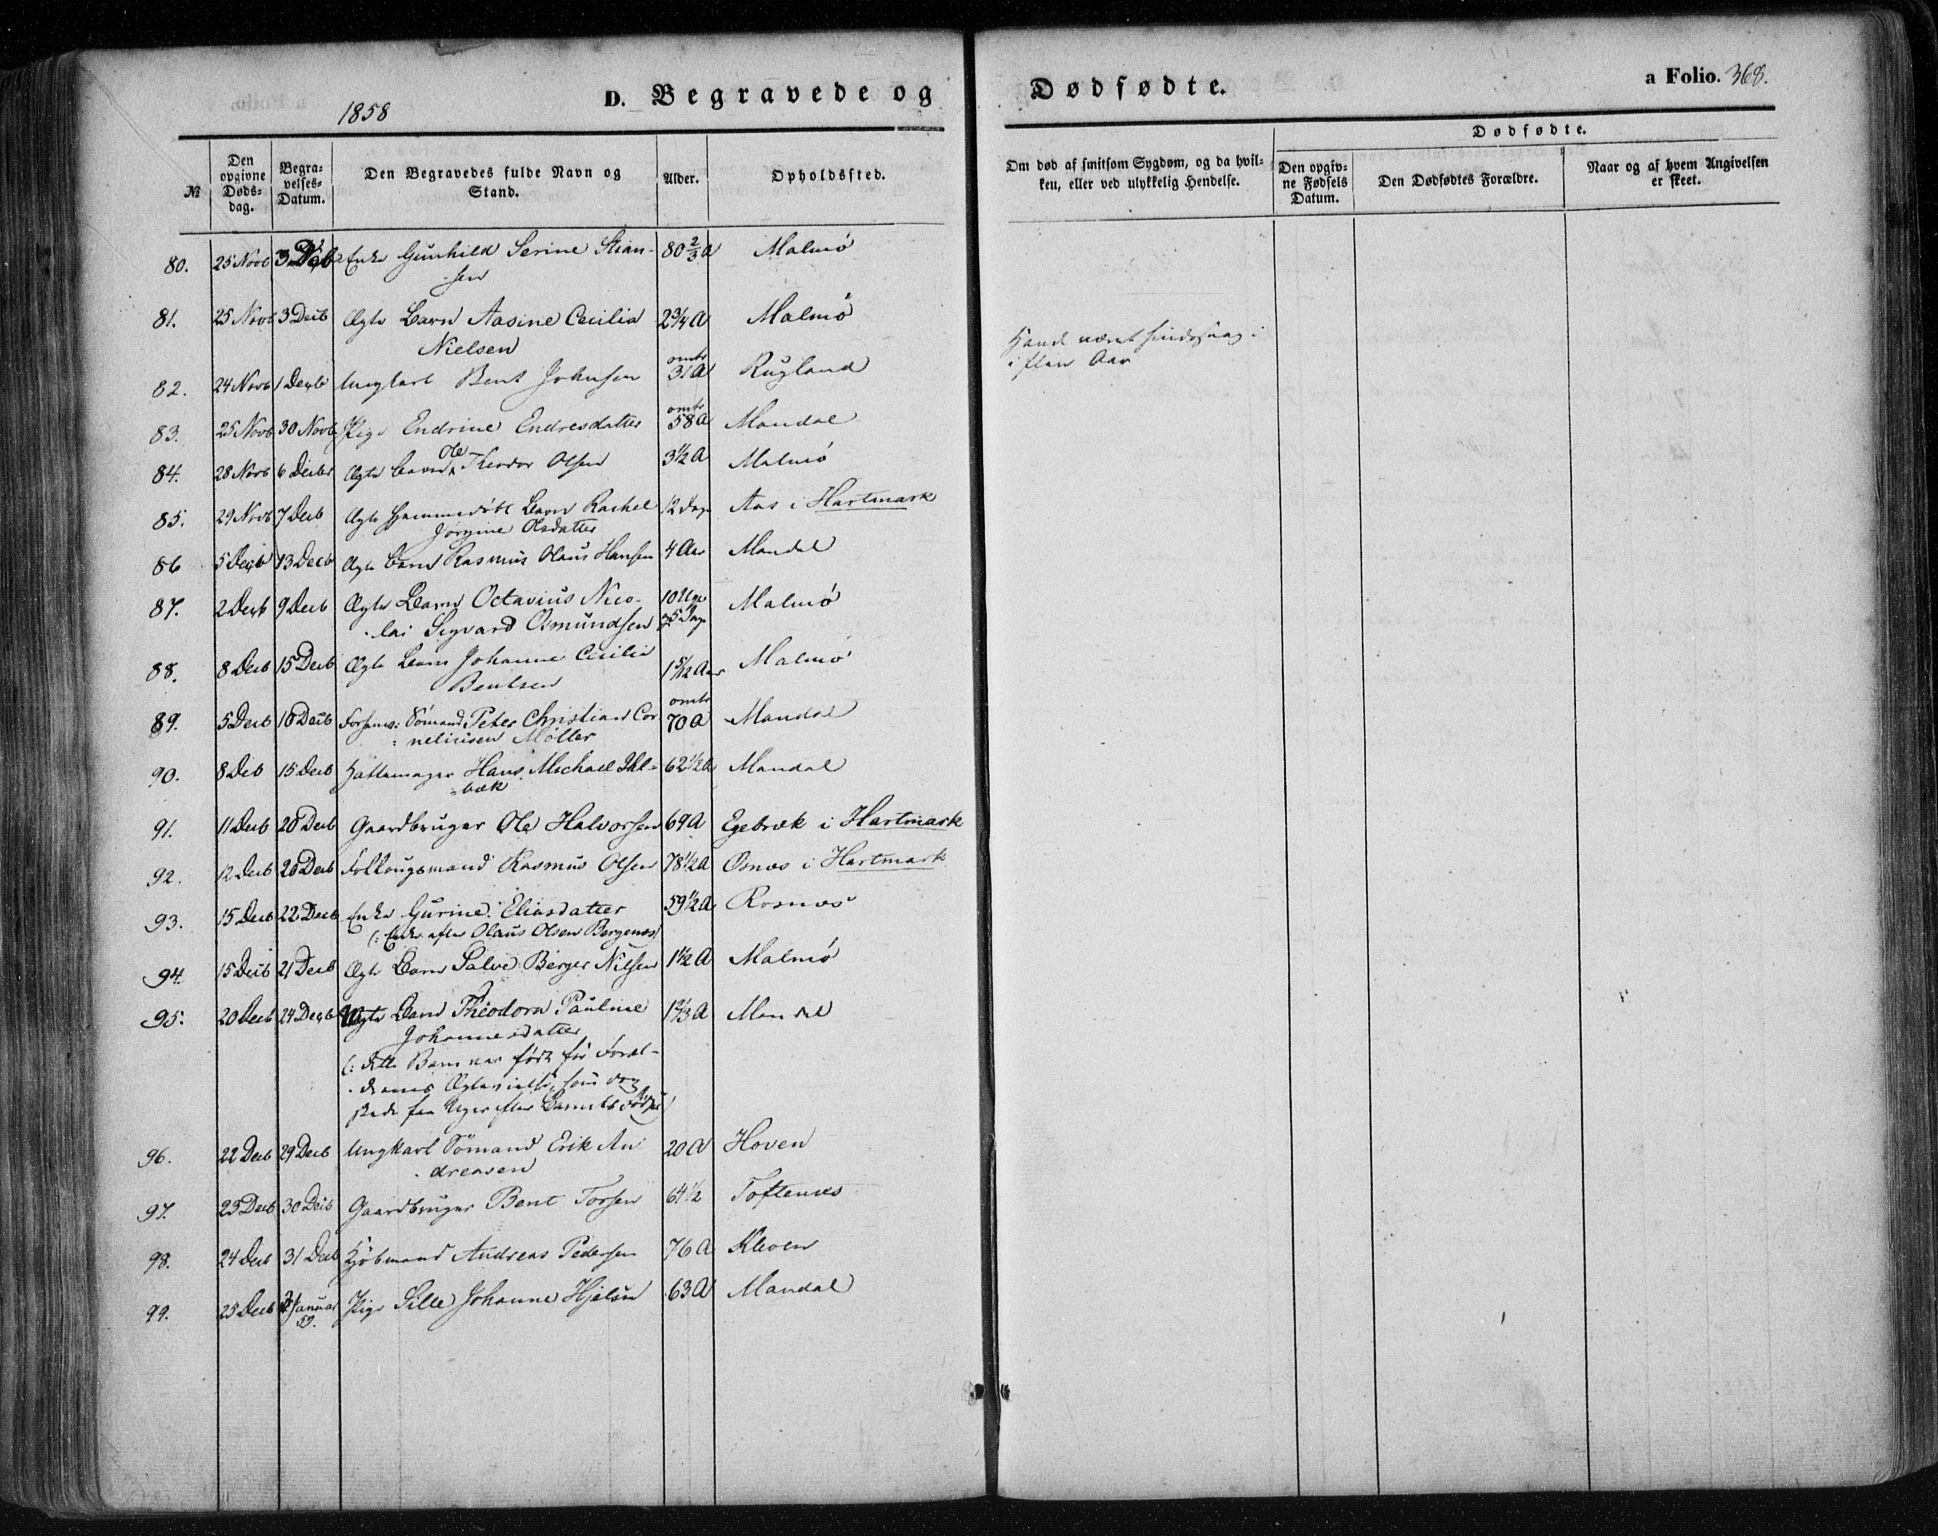 1858
D. Begravede og Dødfødte.
a Folio. 368.
№
Den opgivne Døds-dag.
Begra-velses-Datum.
Den Begravedes fulde Navn og Stand.
Alder.
Opholdssted.
Om død af smitsom Sygdom, og da hvil-ken, eller ved ulykkelig Hendelse.
Dødfødte.
Den opgiv-ne Fødsels Datum.
Den Dødfødtes Forældre.
Naar og af hvem Angivelsen er skeet.
80. 25 Novb 3 Decb Enke Gunhild Serine Stian- 80 2/3 A Malmø
sen
81. 25 Novb 3 Decb Ægte Barn Aasine Cecilia 2 3/4 A Malmø
Nielsen
82. 24 Novb 1 Decb Ungkarl Bent Johnsen omtr 31 A Rugland
Havde været sindssvag i
i flere Aar
83. 25 Novb 30 Novb Pige Endrine Endresdatter omtr 58 A Mandal
84. 28 Novb 6 Decbr Ægte Barn Ole Theodor Olsen 3 1/2 A Malmø
85. 29 Novb 7 Decb Ægte hjemmedøbt Barn Rachel 12 Dage Aas i Hartmark
Jørgine Olsdatter
86 5 Decb 13 Decb Ægte Barn Rasmus Olaus Hansen 4 Aar Mandal
87. 2 Decb 9 Decb Ægte Barn Octavius Nico- 10 Uger Malmø
lai Sigvard Osmundsen 5 Dage
88. 8 Decb 15 Decb Ægte Barn Johanne Cecilie 1 5/12 Aar Malmø
Bentsen
89. 5 Decb 10 Decb Sømand Peter Christian Cor omtr 70 A Mandal
neliusen Møller
90. 8 Decb 15 Decb Hattemager Hans Michael Ihl- 62 1/2 A Mandal
bæk
91. 11 Decb 20 Decb Gaardbruger Ole Halvorsen 69 A Egebæk i Hartmark
92. 12 Decb 20 Decb Folkougsmand Rasmus Olsen 78 1/2 A Osnæs i Hartmark
93. 15 Decb 22 Decb Enke Gurine Eliasdatter 59 1/2 A Rosnæs
(: Enke efter Olaus Olsen Bergenæs)
94. 15 Decb 21 Decb Ægte Barn Salve Berger Nilsen 1 1/2 A Malmø
95. 20 Decb 24 Decb Barn Theodora Pauline 1 2/3 A Mandal
Johannesdatter
(: dette Barn var født før Foræl-
drenes Ægtevielse, som dog
skede faa Uger efter Barnets Fødsel)
96. 22 Decb 29 Decb Ungkarl Sømand Erik An 20 A Hoven
dreasen
97. 23 Decb 30 Decb Gaardbruger Bent Torsen 64 1/2 Toftenæs
98. 24 Decb 31 Decb Kjøbmand Andreas Pedersen 76 A Kleven
99. 25 Decb Januar 59. Pige Sille Johanne Hjelm 63 A Mandal